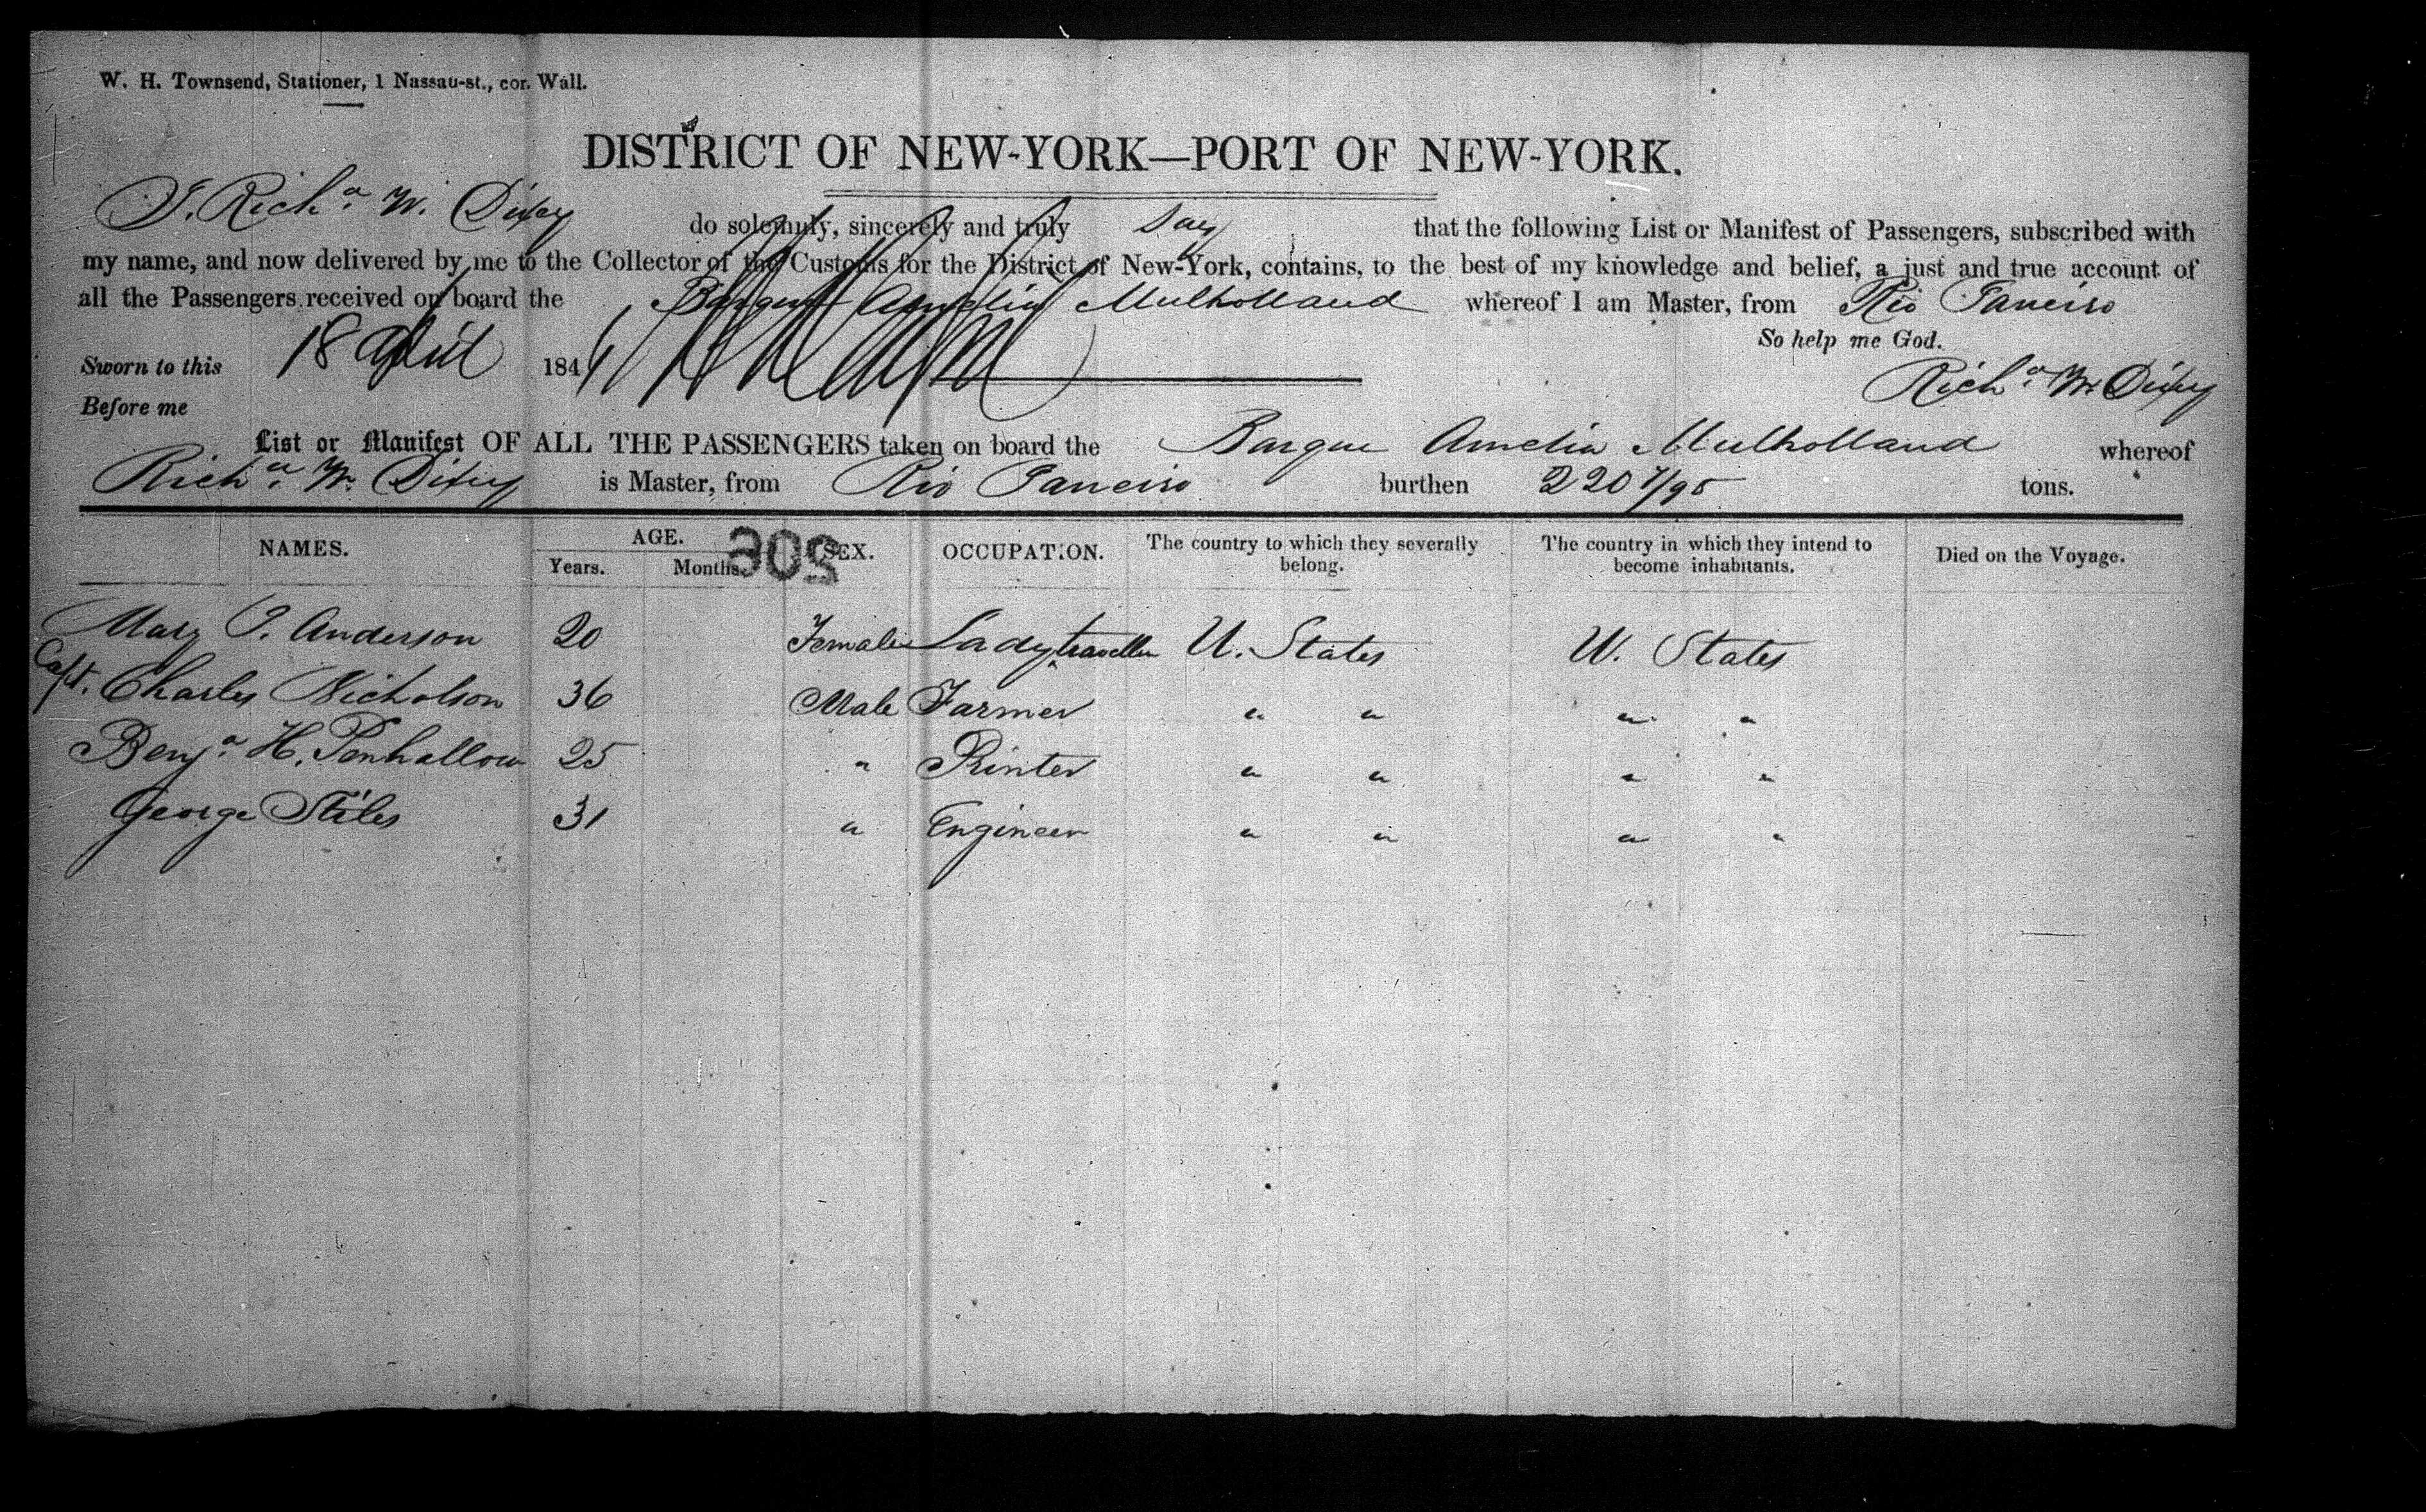 W. H. Townsend, Stationer, 1 Nassau-st., cor. Wall.
DISTRICT OF NEW-YORK—PORT OF NEW-YORK.
I, Richd. W. Dixey do solemnly, sincerely and truly Say that the following List or Manifest of Passengers, subscribed with
my name, and now delivered by me to the Collector of the Customs for the District of New-York, contains, to the best of my knowledge and belief, a just and true account of
all the Passengers received on board the Barque Amelia Mulholland whereof I am Master, from Rio Janeiro
So help me God.
Sworn to this 18 April 184
Richd. W. Dixey
Before me
List or Manifest OF ALL THE PASSENGERS taken on board the Barque Amelia Mulholland whereof
Richd. W. Dixey is Master, from Rio Janeiro burthen 220 7/95 tons.
NAMES. AGE. Years. Months. SEX. OCCUPATION. The country to which they severally belong. The country in which they intend to become inhabitants. Died on the Voyage.
205
Mary I. Anderson 20 Female Lady traveller U. States U. States
Capt. Charles Nicholson 36 Male Farmer " " " "
Benja. H. Penhallow 25 " Printer " " " "
George Stiles 31 " Engineer " " " "